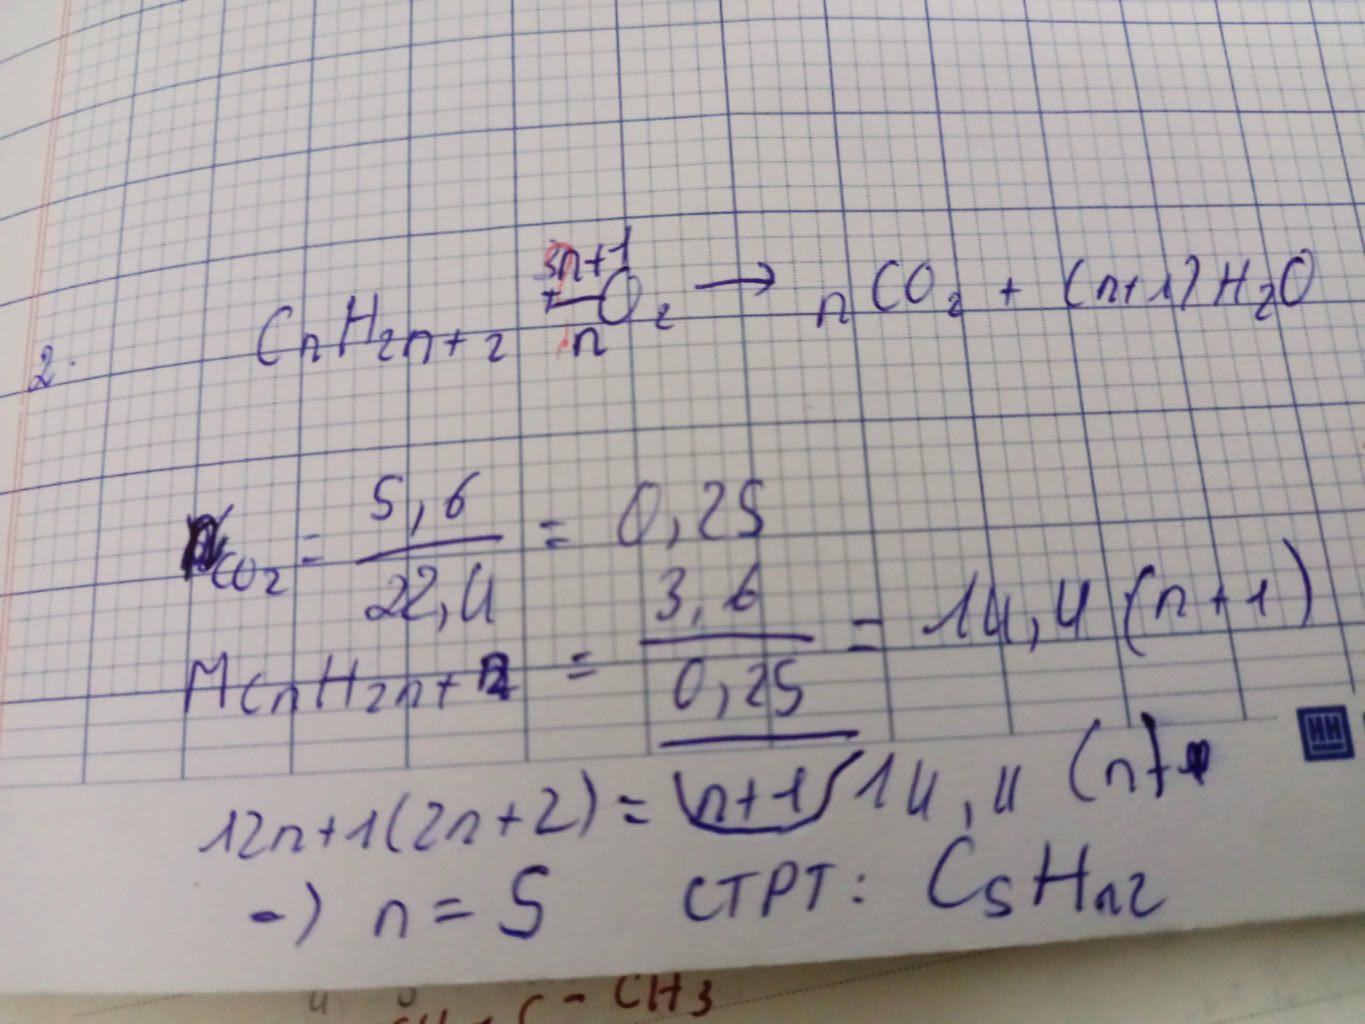 2. CnH2n+2 + 3n+1/n O2 → nCO2 + (n+1)H2O
nCO2 = 5,6/22,4 = 0,25
MCnH2n+2 = 3,6/0,25 = 14,4 (n+1)
12n+1(2n+2) = (n+1) 14,4 (n+
-) n = 5 CTPT: C5H12
- CH3